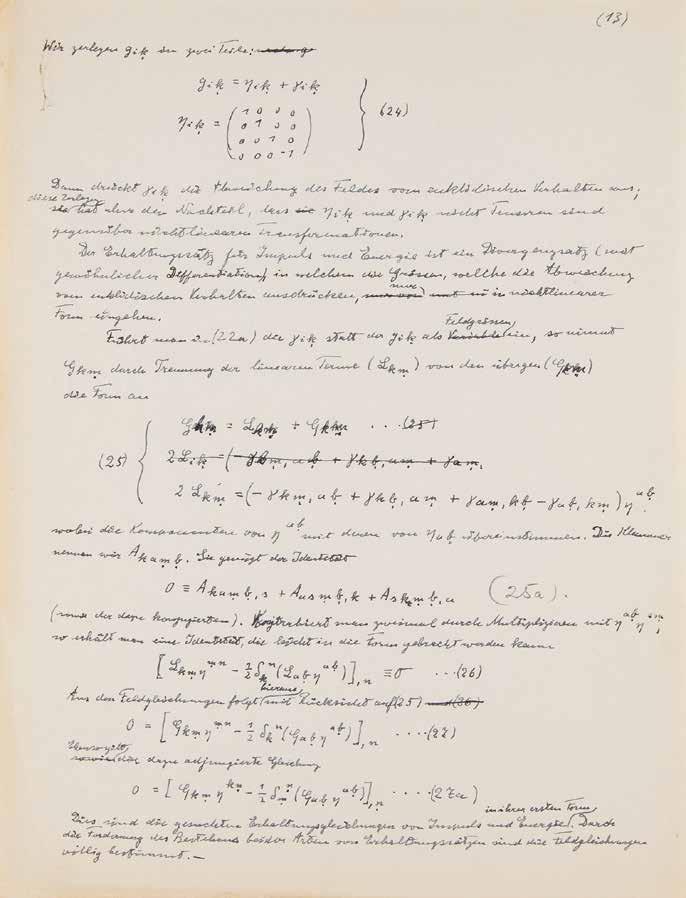 (13)
Wir zerlegen g_ik in zwei Teile:
g_ik = η_ik + γ_ik
η_ik = (1 0 0 0
0 1 0 0
0 0 1 0
0 0 0 -1) } (24)
Dann drückt γ_ik die Abweichung des Feldes vom euklidischen Verhalten aus;
diese Zerlegg hat aber den Nachteil, dass η_ik und γ_ik nicht Tensoren sind
gegenüber nichtlinearen Transformationen.
Der Erhaltungssatz für Impuls und Energie ist ein Divergenzsatz (mit
gewöhnlicher Differentiation), in welchem die Grössen, welche die Abweichung
vom euklidischen Verhalten ausdrücken, nur in nichtlinearer
Form eingehen.
Führt man in (22a) die γ_ik statt der g_ik als Feldgrössen ein, so nimmt
G_km durch Trennung der linearen Terme (L_km) von den übrigen (G_km)
die Form an
G_km = L_km + G_km . . . (25)
2 L_ik = (- γ_km,ab + γ_kb,am + γ_am,
(25) { 2 L_km = (- γ_km,ab + γ_kb,am + γ_am,kb - γ_ab,km) η^ab.
wobei die Komponenten von η^ab mit denen von η_ab übereinstimmen. Die Klammer
nennen wir A_kamb. Sie genügt der Identität
0 ≡ A_kamb,s + A_asmb,k + A_skmb,a (25a).
(sowie der dazu konjugierten). Kontrahiert man zweimal durch Multiplizieren mit η^ab η^sm,
so erhält man eine Identität, die leicht in die Form gebracht werden kann
[L_km η^mn - 1/2 δ_k^n (L_ab η^ab)],n ≡ 0 . . . (26)
Aus den Feldgleichungen folgt hieraus mit Rücksicht auf (25) und (26)
0 = [G_km η^mn - 1/2 δ_k^n (G_ab η^ab)],n . . . . (27)
Ebenso gilt die dazu adjungierte Gleichung
0 = [G_km η^kn - 1/2 δ_m^n (G_ab η^ab)],n . . . . (27a)
Dies sind die gesuchten Erhaltungsgleichungen von Impuls und Energie in ihrer ersten Form. Durch
die Forderung des Bestehens beider Arten von Erhaltungssätzen sind die Feldgleichungen
völlig bestimmt. —